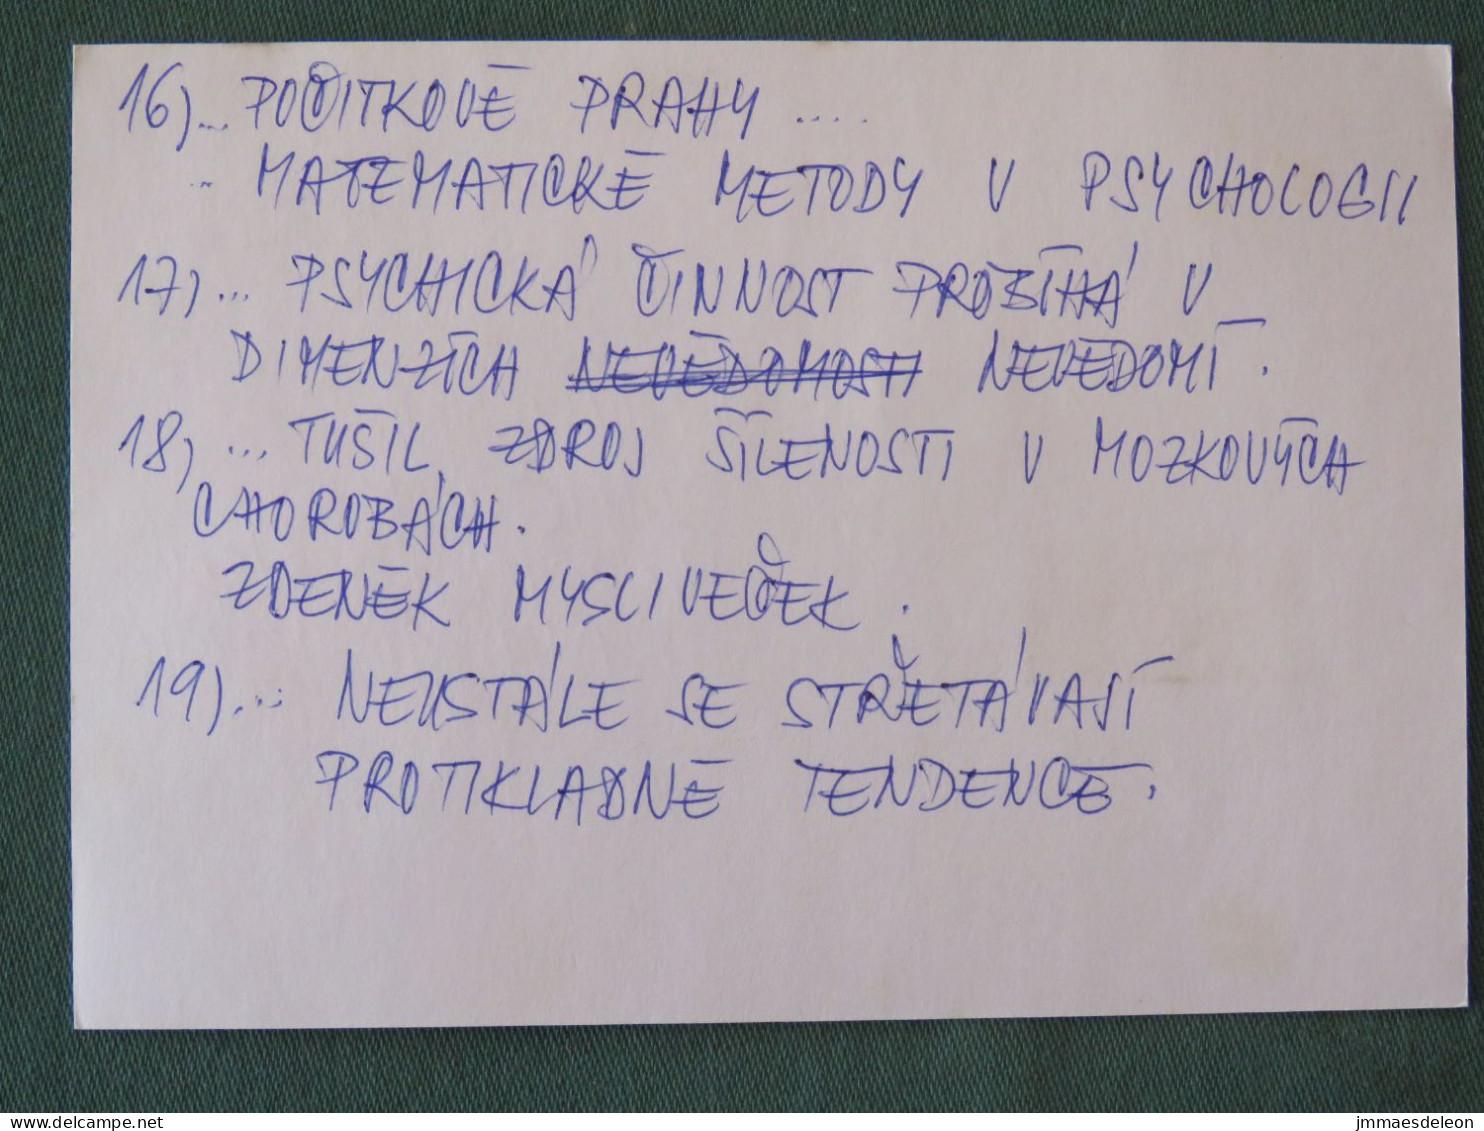 16)... POČITKOVÉ PRAHY ....
.. MATEMATICKÉ METODY V PSYCHOLOGII
17)... PSYCHICKÁ ČINNOST PROBÍHÁ V
DIMENZÍCH NEVĚDOMOSTI NEVĚDOMÍ.
18) ... TUŠIL ZDROJ ŠÍLENOSTI V MOZKOVÝCH
CHOROBÁCH.
ZDENĚK MYSLIVEČEK.
19)... NEUSTÁLE SE STŘETÁVAJÍ
PROTIKLADNÉ TENDENCE.
www.delcampe.net
jmmaesdeleon